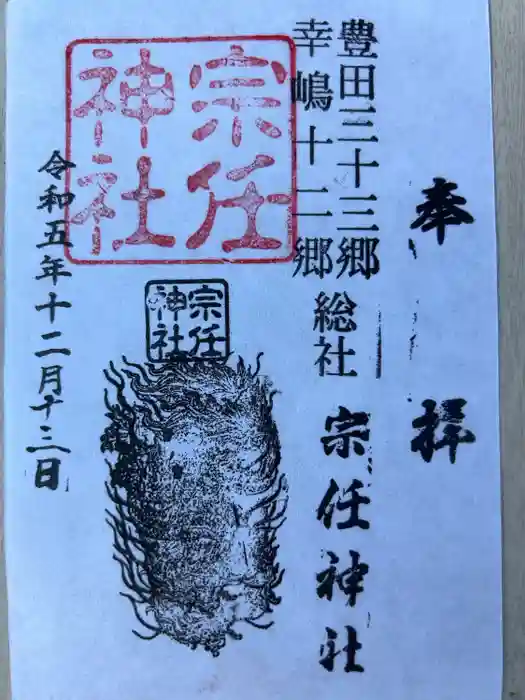 奉拝
豊田三十三郷
幸嶋十二郷
総社
宗任神社
宗任
神社
宗任
神社
令和五年十二月十三日